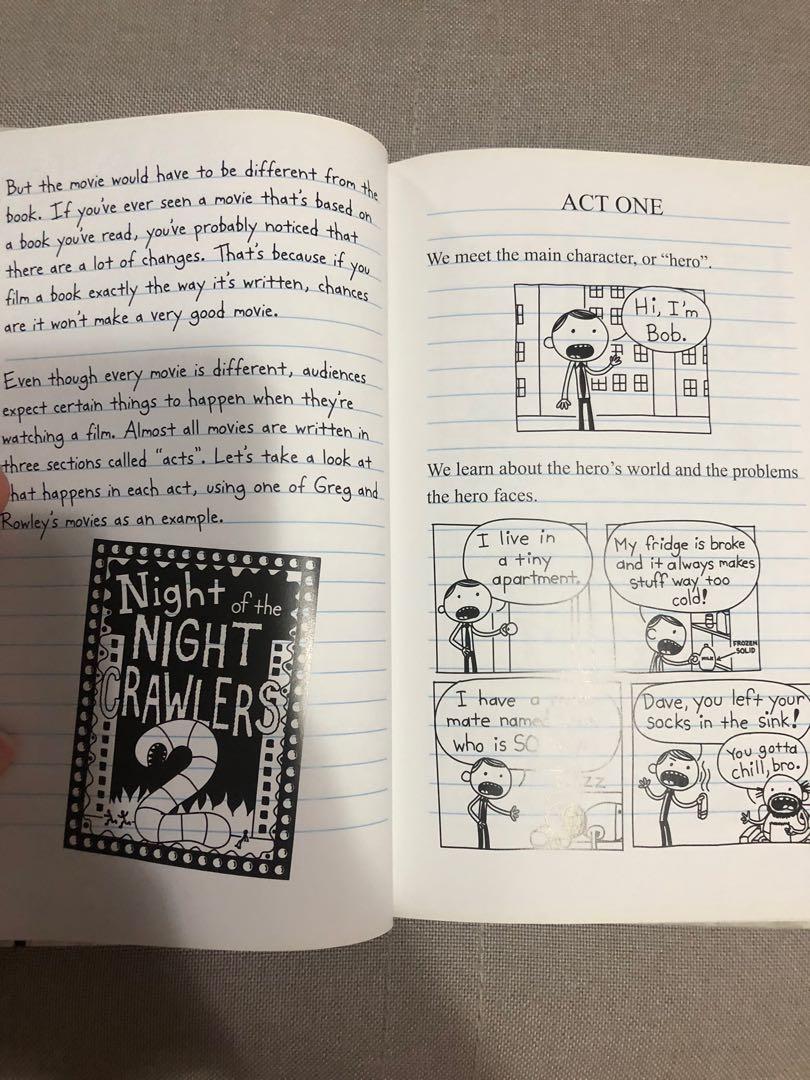 But the movie would have to be different from the
book. If you've ever seen a movie that's based on
a book you've read, you've probably noticed that
there are a lot of changes. That's because if you
film a book exactly the way it's written, chances
are it won't make a very good movie.
Even though every movie is different, audiences
expect certain things to happen when they're
watching a film. Almost all movies are written in
three sections called "acts". Let's take a look at
hat happens in each act, using one of Greg and
Rowley's movies as an example.
Night of the
NIGHT
CRAWLERS
2
ACT ONE
We meet the main character, or "hero".
Hi, I'm
Bob.
We learn about the hero's world and the problems
the hero faces.
I live in
a tiny
apartment.
My fridge is broke
and it always makes
stuff way too
cold!
FROZEN
SOLID
MILK
I have a
mate named
who is SO
ZZ
Dave, you left your
socks in the sink!
You gotta
chill, bro.